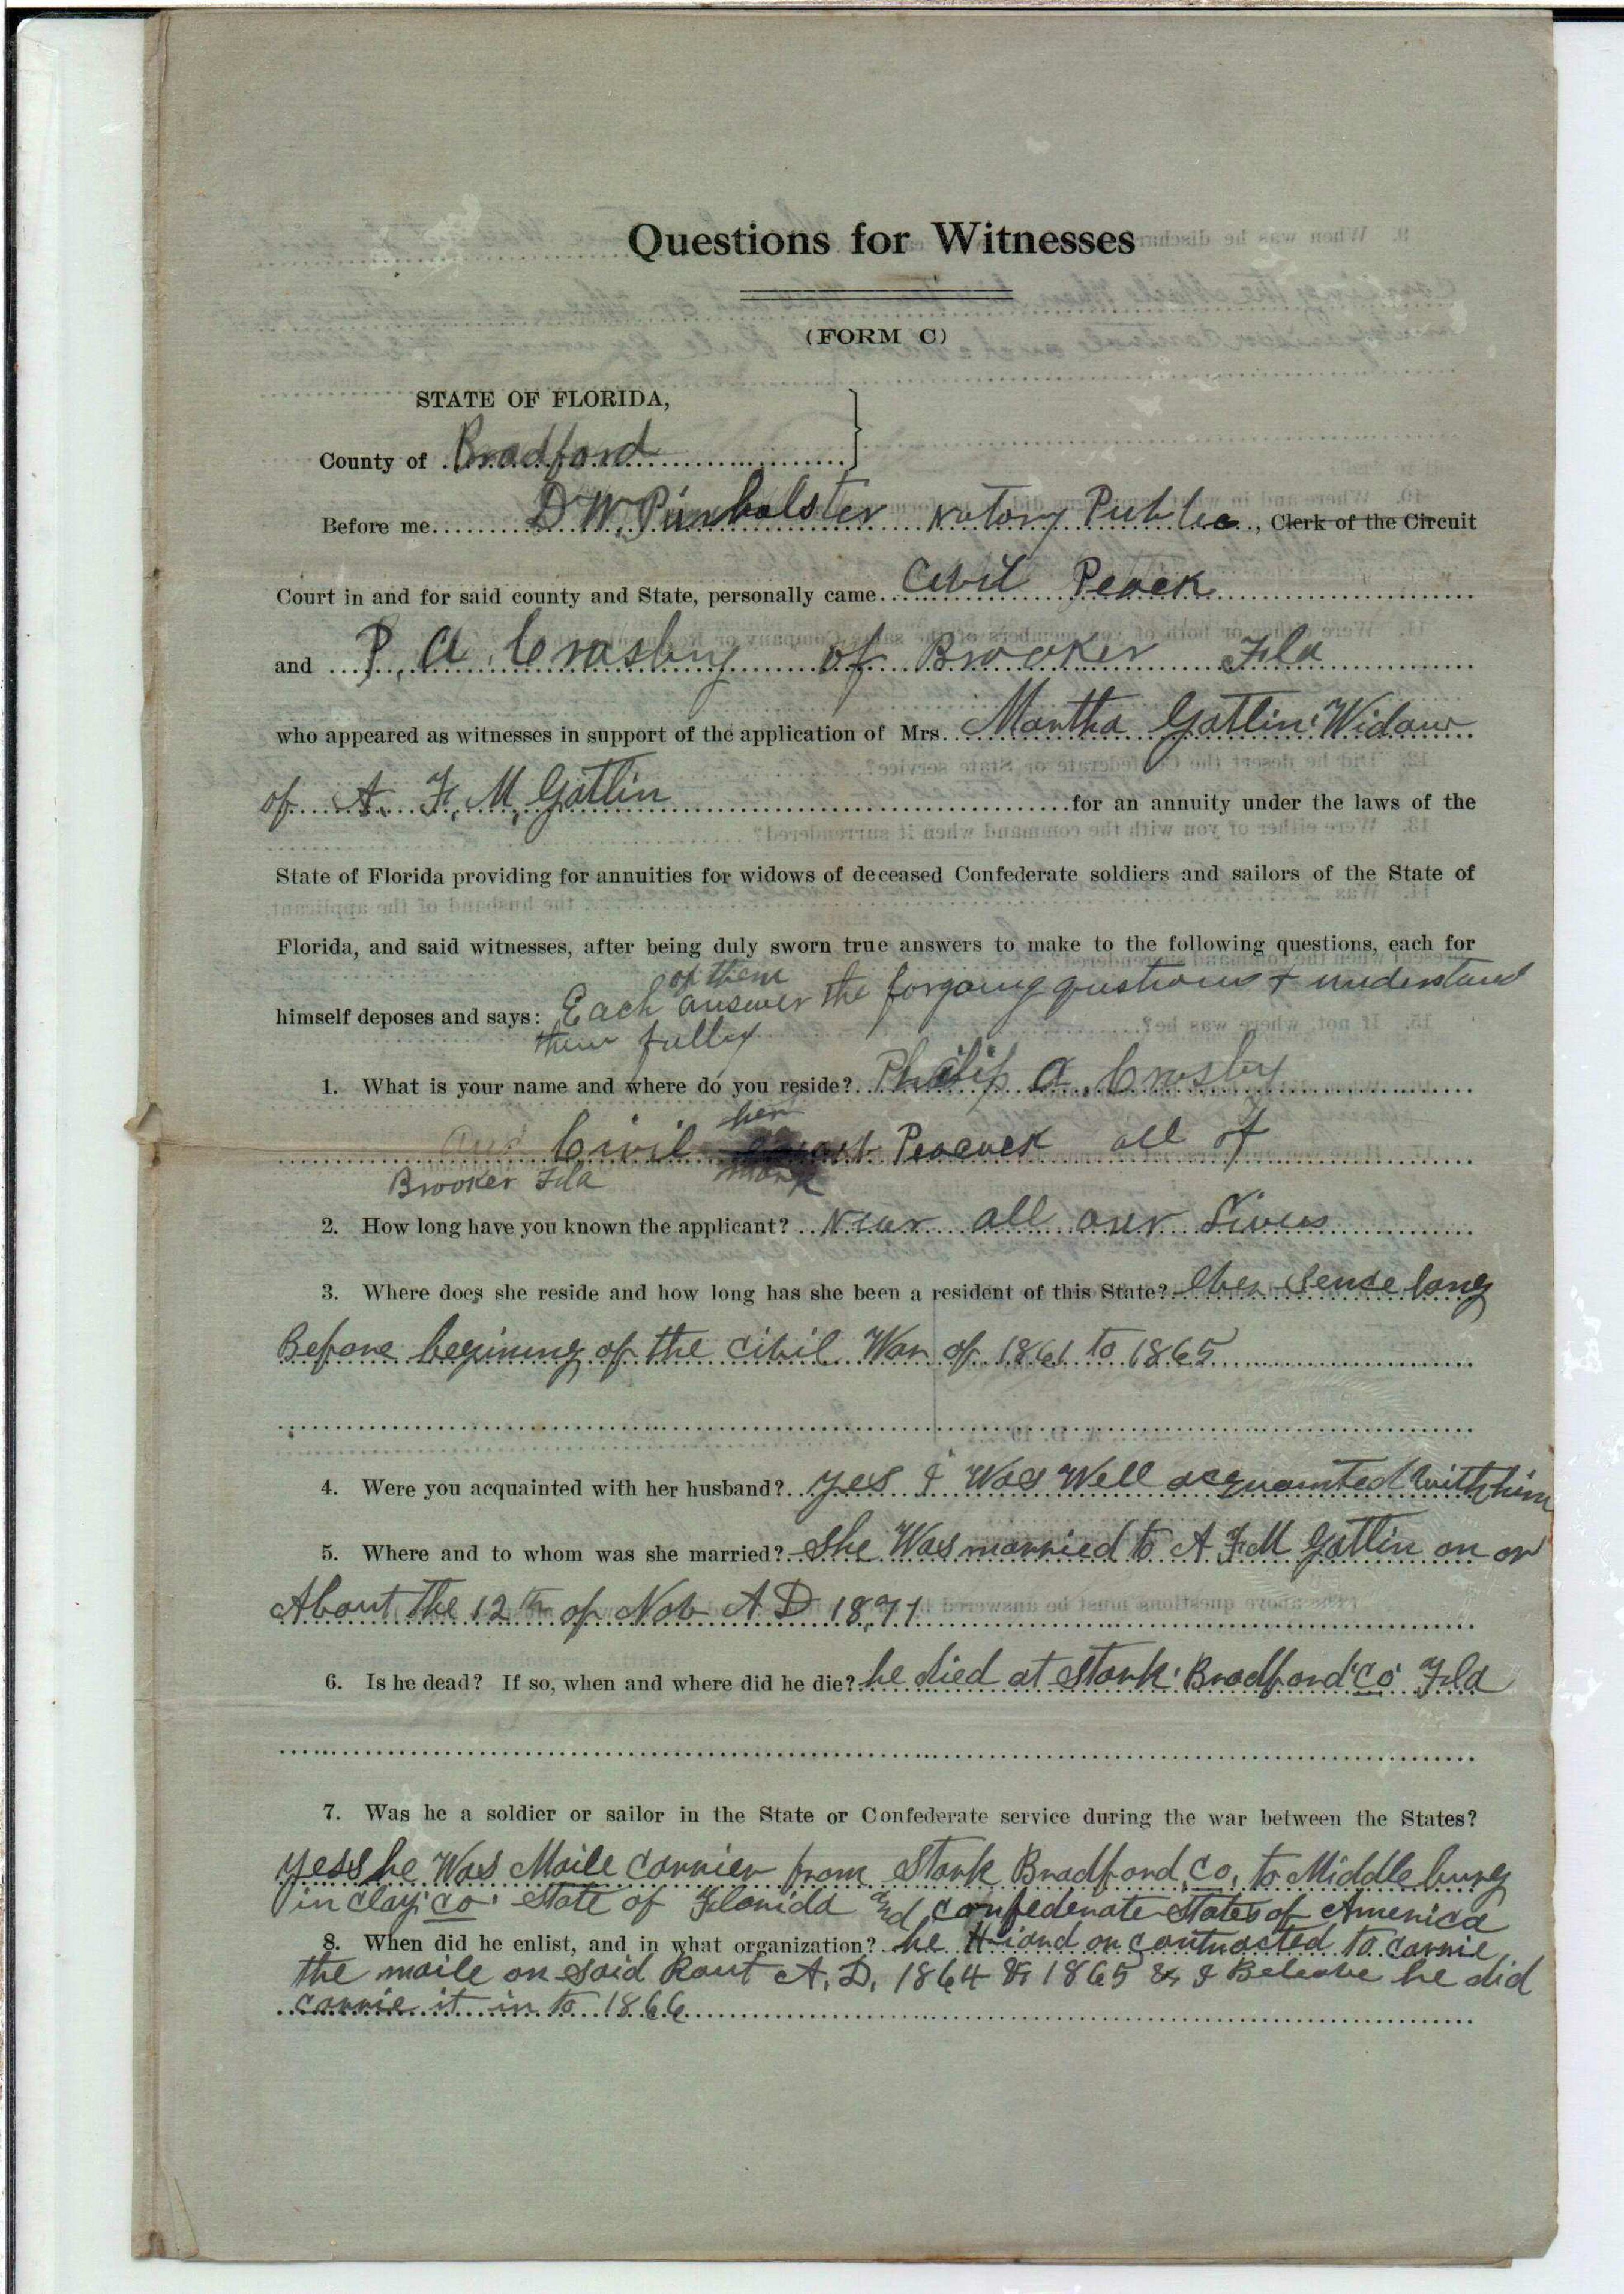 Questions for Witnesses
(FORM C)
STATE OF FLORIDA,
County of Bradford
Before me D W Pinholster Notory Public, Clerk of the Circuit
Court in and for said county and State, personally came Civil Peack
and P. A. Crosby of Brooker Fla
who appeared as witnesses in support of the application of Mrs. Martha Gatlin Widow
of A. F. M. Gatlin for an annuity under the laws of the
State of Florida providing for annuities for widows of deceased Confederate soldiers and sailors of the State of
Florida, and said witnesses, after being duly sworn true answers to make to the following questions, each for
of them
himself deposes and says: Each answer the forgoing qustions & understand
them fully
1. What is your name and where do you reside? Philip A. Crosby
her
and Civil Peacuck all of
Brooker Fla mark
2. How long have you known the applicant? Near all our Lives
3. Where does she reside and how long has she been a resident of this State? Ever sence long
Before begining of the civil War of 1861 to 1865
4. Were you acquainted with her husband? yes I Was Well acquainted with him
5. Where and to whom was she married? She Was married to A. F. M Gatlin on or
About the 12th of Nov A D 1871
6. Is he dead? If so, when and where did he die? he died at Stark Bradford Co Fla
7. Was he a soldier or sailor in the State or Confederate service during the war between the States?
yess he Was Maile carrier from Stark Bradford, Co, to Middleburg
in clay co. State of Florida and confederate States of America
8. When did he enlist, and in what organization? he Hiard or contracted to carrie
the maile on said Rout A. D. 1864 & 1865 & I Beleave he did
carrie it in to 1866